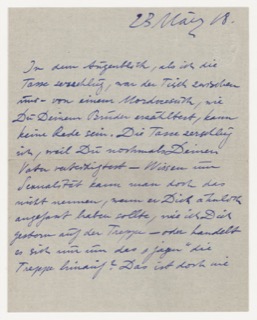 23. März 18.
In dem Augenblick, als ich die
Tasse zerschlug, war der Tisch zwischen
uns – von einem Mordversuch, wie
Du Deinem Bruder erzähltest, kann
keine Rede sein. Die Tasse zerschlug
ich, weil Du nochmals Deinen
Vater verteidigtest – Wissen um
Sexualität kann man doch das
nicht nennen, wenn er Dich
angefasst haben sollte, wie ich Dich
gestern auf der Treppe – oder handelt
es sich nur um das „jagen" die
Treppe hinauf? Das ist doch nie